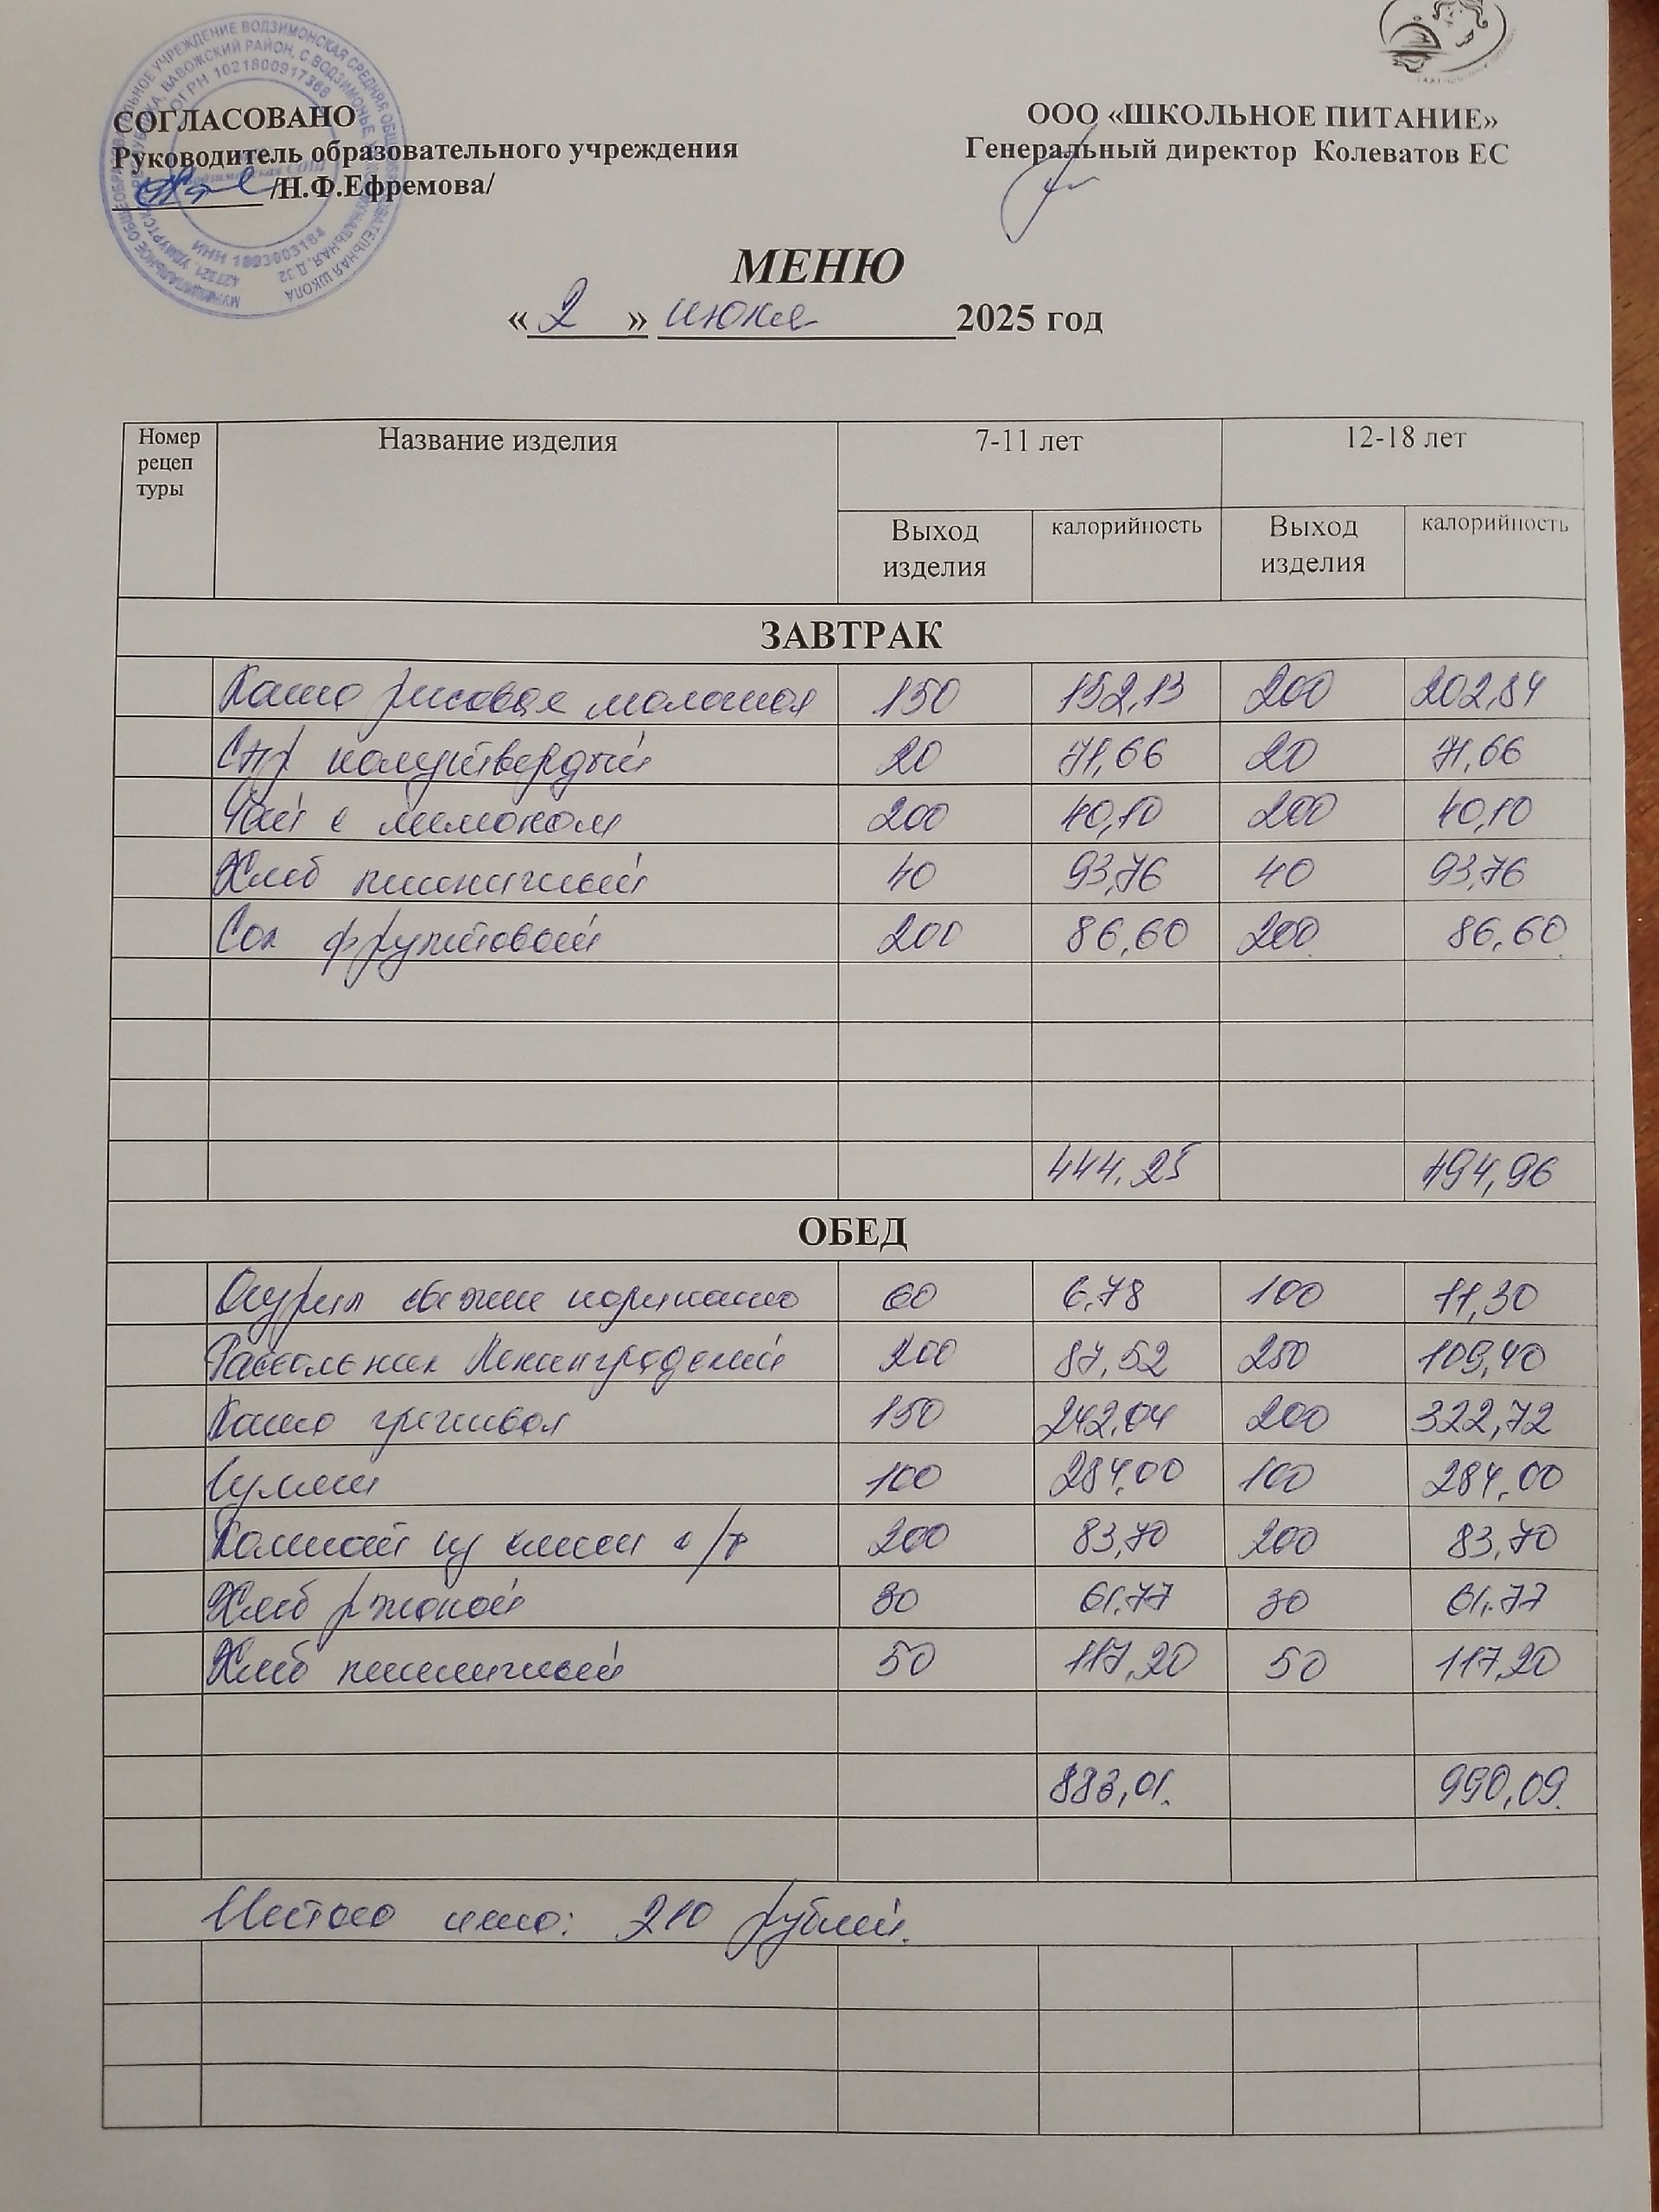 МУНИЦИПАЛЬНОЕ ОБЩЕОБРАЗОВАТЕЛЬНОЕ УЧРЕЖДЕНИЕ ВОДЗИМОНСКАЯ СРЕДНЯЯ ОБЩЕОБРАЗОВАТЕЛЬНАЯ ШКОЛА
ОГРН 1021800917368
ИНН 1803003184
СОГЛАСОВАНО
Руководитель образовательного учреждения
/Н.Ф.Ефремова/
ООО «ШКОЛЬНОЕ ПИТАНИЕ»
Генеральный директор Колеватов ЕС
МЕНЮ
« 2 » июня 2025 год
Номер рецеп туры Название изделия 7-11 лет 12-18 лет
Выход изделия калорийность Выход изделия калорийность
ЗАВТРАК
Каша рисовая молочная 150 152,13 200 202,84
Сыр полутвердый 20 71,66 20 71,66
Чай с лимоном 200 40,10 200 40,10
Хлеб пшеничный 40 93,76 40 93,76
Сок фруктовый 200 86,60 200 86,60
444,25 494,96
ОБЕД
Огурцы свежие порционно 60 6,78 100 11,30
Рассольник Ленинградский 200 87,52 250 109,40
Каша гречневая 150 242,04 200 322,72
Гуляш 100 284,00 100 284,00
Компот из смеси с/ф 200 83,70 200 83,70
Хлеб ржаной 30 61,77 30 61,77
Хлеб пшеничный 50 117,20 50 117,20
883,01. 990,09.
Итого цена: 210 рублей.